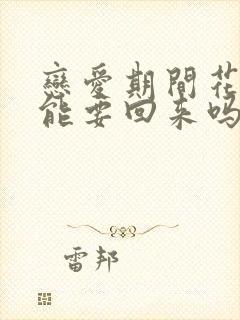 戀愛期間花
能要回来吗
雷邦